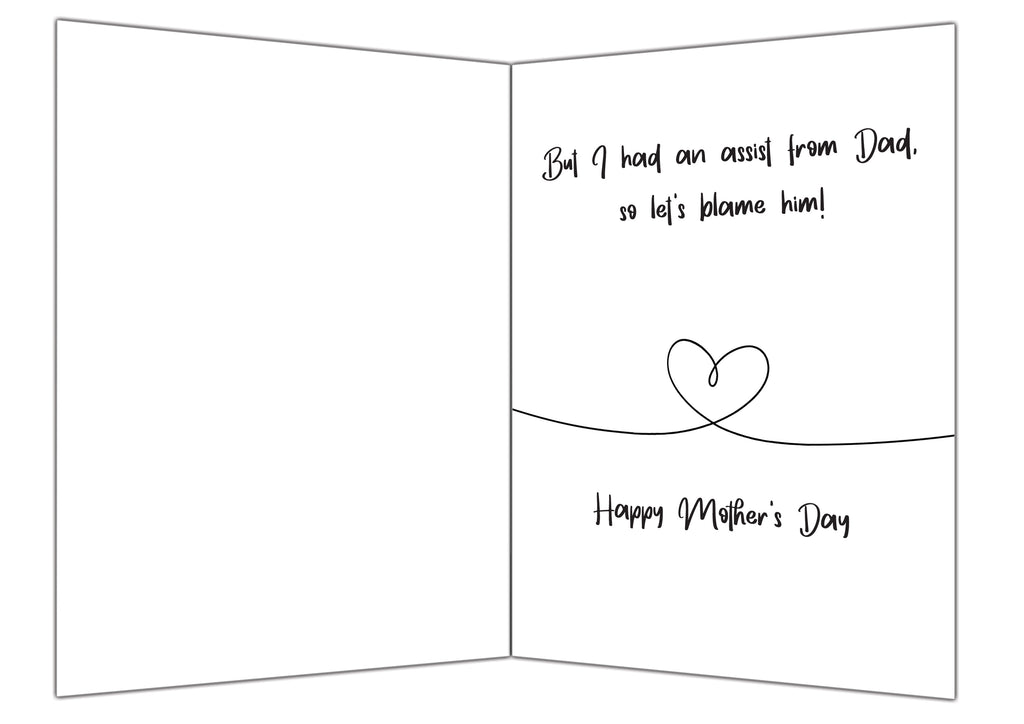 But I had an assist from Dad,
so let's blame him!
Happy Mother's Day